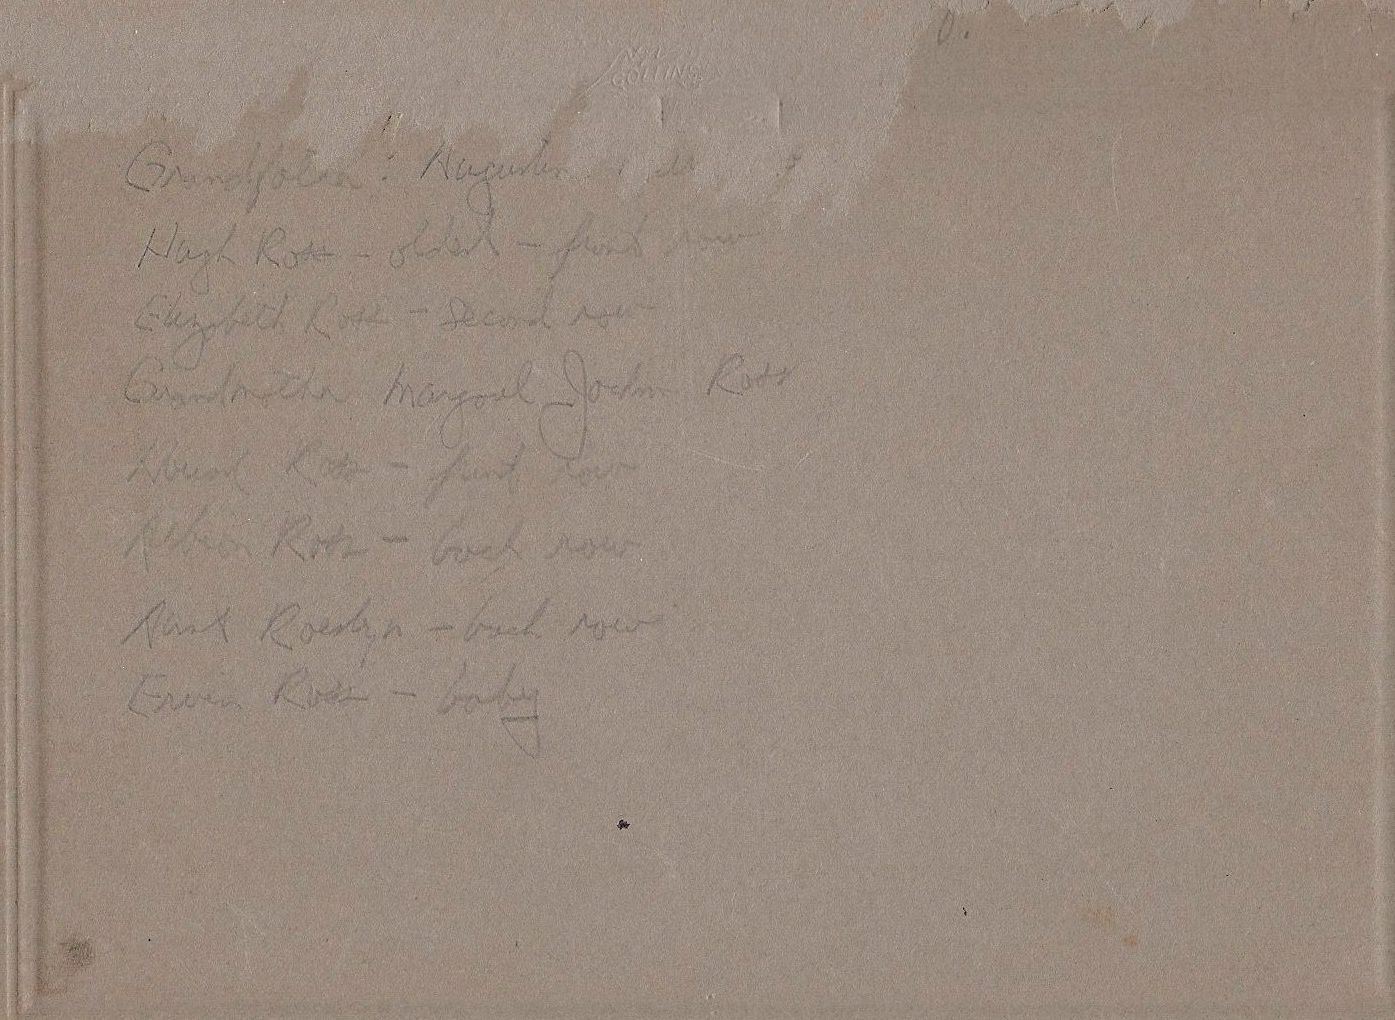 COLLINS
Grandfather: Augustin
Hugh Ross - oldest - front row
Elizabeth Ross - second row
Grandmother Margaret Ross
Ross - front row
Albion Ross - back row
Aunt Roslyn - back row
Erwin Ross - baby